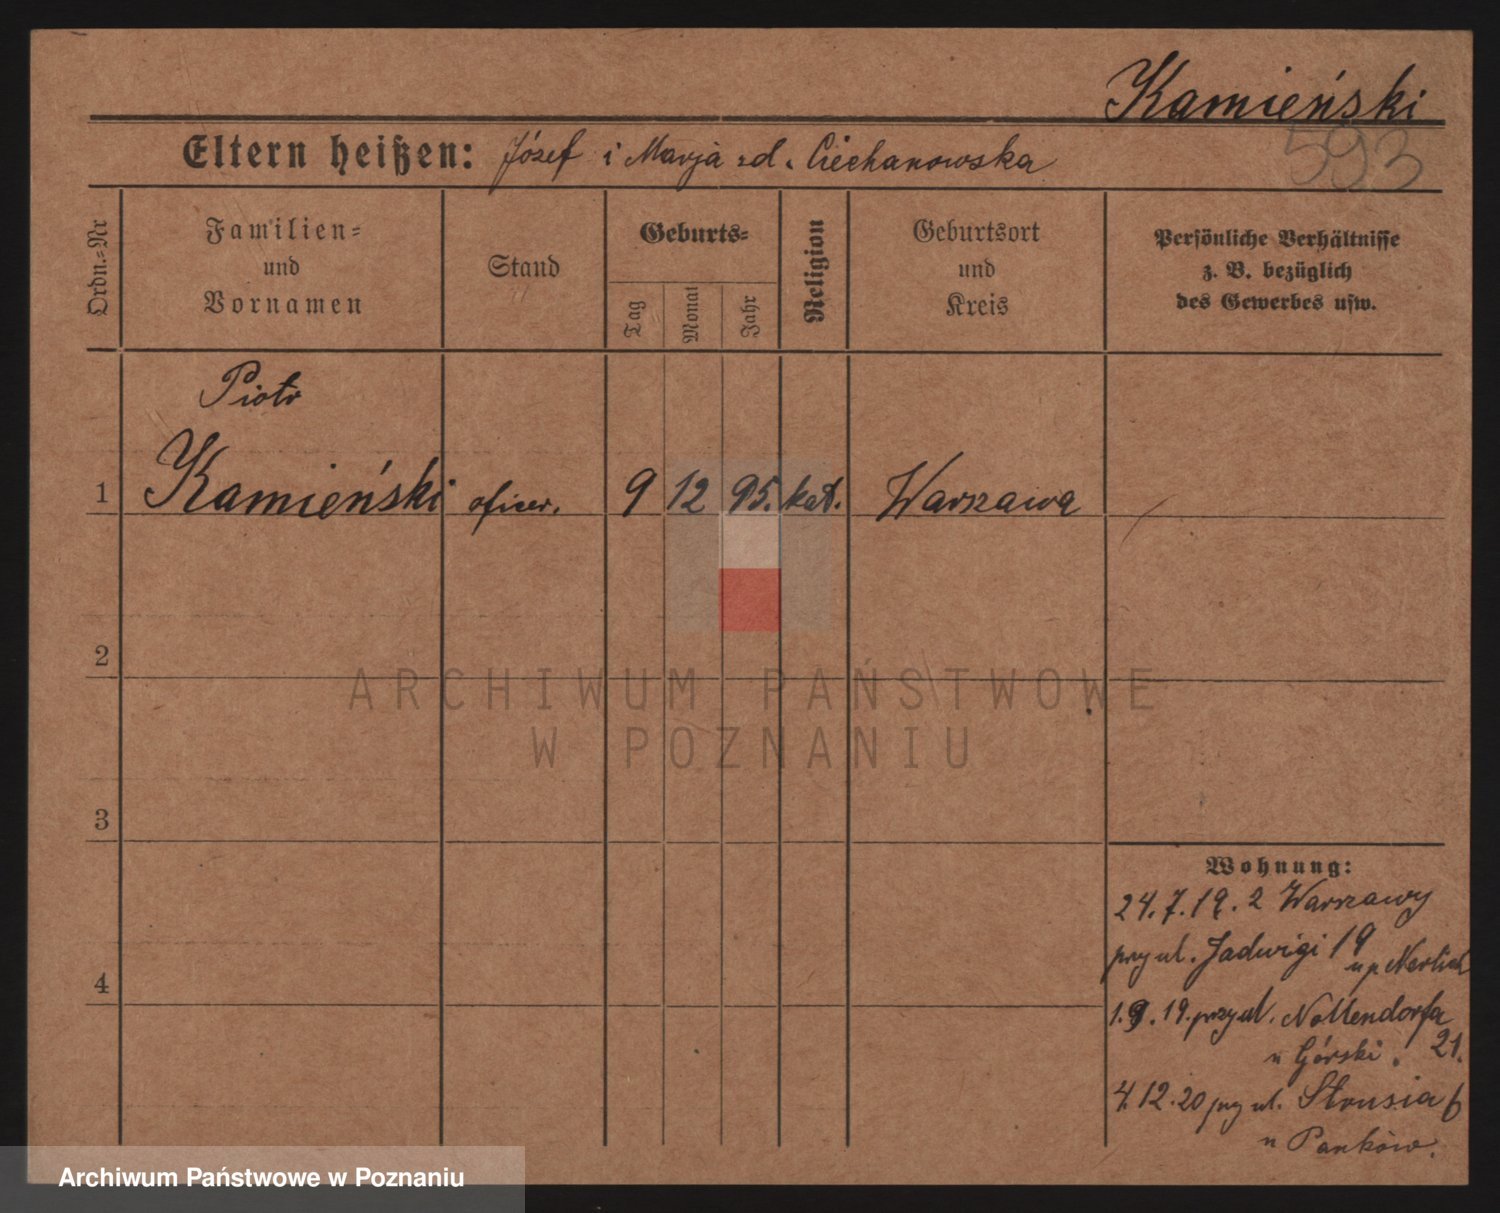 Kamieński
593
Eltern heißen: Józef i Marja zd. Ciechanowska
Ordn.-Nr
Familien-
und
Vornamen
Stand
Geburts-
Tag
Monat
Jahr
Religion
Geburtsort
und
Kreis
Persönliche Verhältnisse
z. B. bezüglich
des Gewerbes usw.
Piotr
1 Kamieński oficer. 9 12 95. kat. Warszawa
2
ARCHIWUM PAŃSTWOWE
W POZNANIU
3
Wohnung:
24.7.19. z Warszawy
przy ul. Jadwigi 19
u p Nerlich
4
1.9.19. przy ul. Nollendorfa
u Górski. 21.
4.12.20 przy ul. Strusia 6
u Panków.
Archiwum Państwowe w Poznaniu